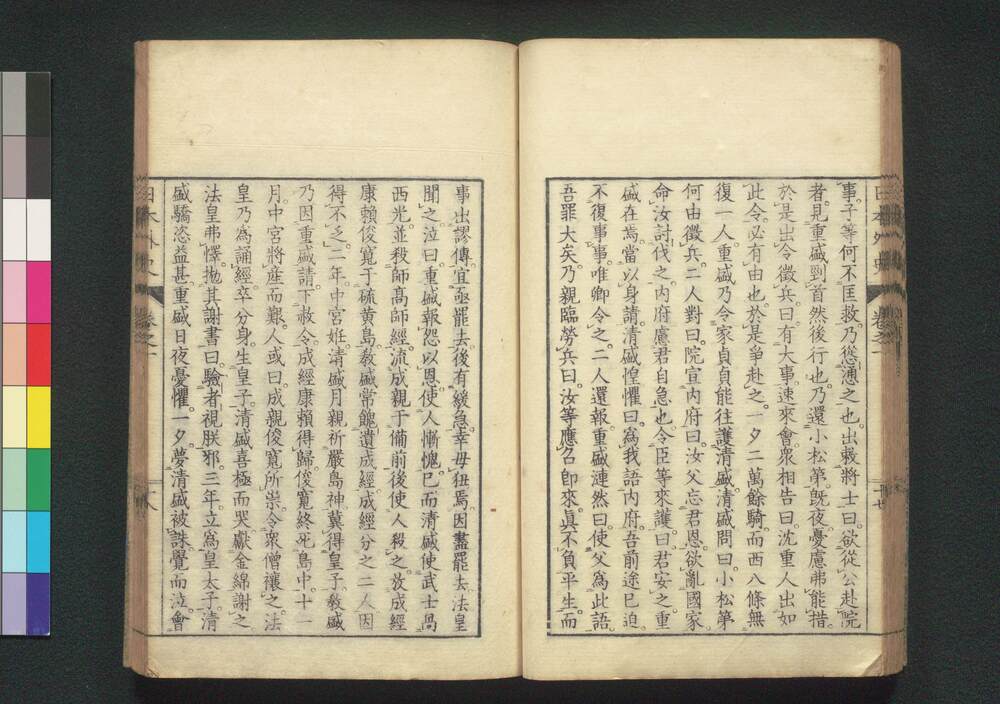 事子等何不匡救乃慫慂之也出戒將士曰欲從公赴院
者見重盛刎首然後行也乃還小松第既夜憂慮弗能措
於是出令徵兵曰有大事速來會衆相告曰沈重人出如
此令必有由也於是爭赴之一夕二萬餘騎而西八條無
復一人重盛乃令家貞貞能往護清盛清盛問曰小松第
何由徵兵二人對曰院宣內府曰汝父忘君恩欲亂國家
命汝討伐之內府慮君自急也令臣等來護曰君安之重
盛在焉當以身請清盛惶懼曰爲我語內府吾前途已迫
不復事事唯卿令之二人還報重盛漣然曰使父爲此語
吾罪大矣乃親臨勞兵曰汝等應召卽來眞不負平生而
事出謬傳宜亟罷去後有緩急幸毋狃焉因盡罷去法皇
聞之泣曰重盛報怨以恩使人慚愧已而清盛使武士咼
西光並殺師高師經流成親于備前後使人殺之放成經
康賴俊寬于硫黃島敎盛常餽遺成經成經分之二人因
得不乏二年中宮姙清盛月親祈嚴島神冀得皇子敎盛
乃因重盛請下赦令成經康賴得歸俊寬終死島中十一
月中宮將産而艱人或曰成親俊寬所祟令衆僧禳之法
皇乃爲誦經卒分身生皇子清盛喜極而哭獻金綿謝之
法皇弗懌抛其謝書曰驗者視朕邪三年立爲皇太子清
盛驕恣益甚重盛日夜憂懼一夕夢清盛被誅覺而泣會